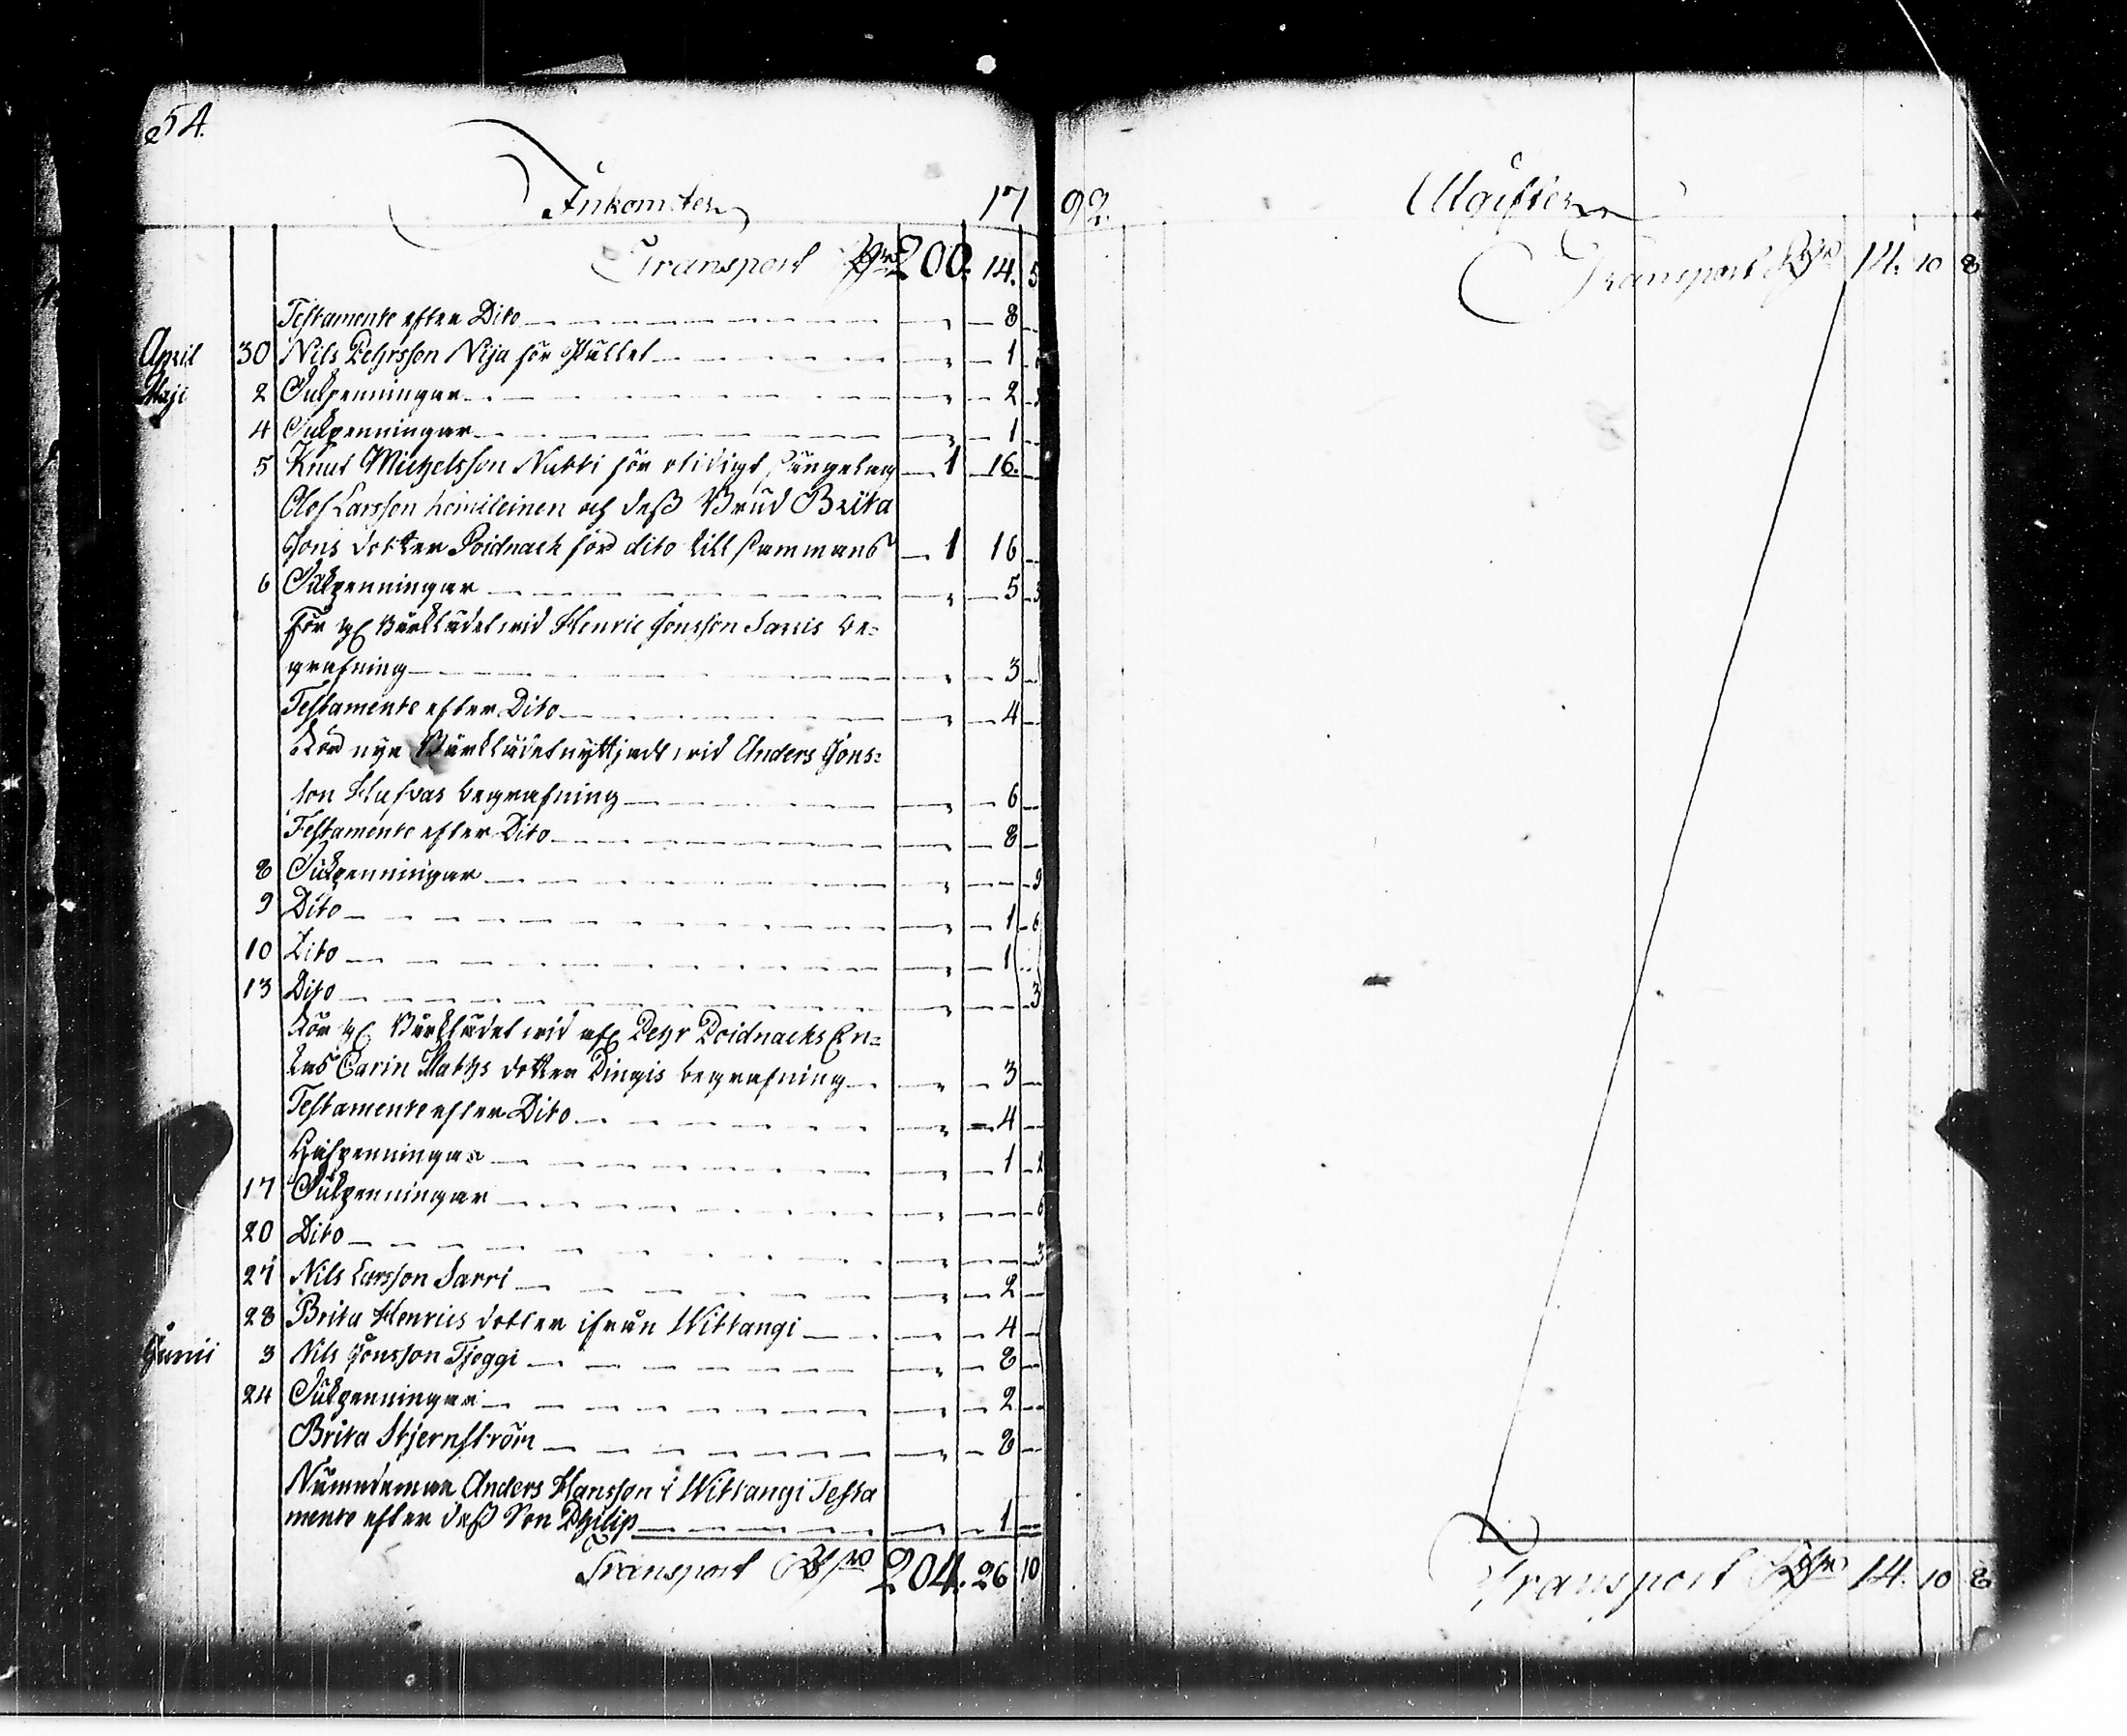 54.
Inkomster 17
Transport Rdr 200. 14. 5
Testamente efter Dito 8
April 30 Nils Pehrsson Nija för Stället 1
Maji 2 Tulpenningar 2
4 Tulpenningar 1
5 Knut Michelsson Nutti för otidigt sängelag 1 16.
Olof Larsson och dess Brud Brita
Jons dotter Poidnack för dito till sammans 1 16
6 Tulpenningar 5 3
För gl Bårklädet vid Henric Jonsson Sarris be=
grafning 3
Testamente efter Dito 4
För nya Bårklädet nyttjadt vid Anders Jons=
son Hufvas begrafning 6
Testamente efter Dito 8
8 Tulpenningar 9
9 Dito 1 6
10 Dito 1
13 Dito 3
För gl Bårklädet vid afl Pehr Poidnacks En=
kas Carin Maths dotter Pingis begrafning 3
Testamente efter Dito 4
Håfpenningar 1
17 Tulpenningar 6
20 Dito 3
27 Nils Larsson Sarri 2
28 Brita Henrics dotter ifrån Wittangi 4
Junii 3 Nils Jonsson Tjoggi 8
24 Tulpenningar 2
Brita Stjernström 8
Nämndeman Anders Hansson i Wittangi Testa
mente efter dess Son Philip 1
Transport Rdr 204. 26 10
92.
Utgifter
Transport Rdr 14. 10 8
Transport Rdr 14. 10 8